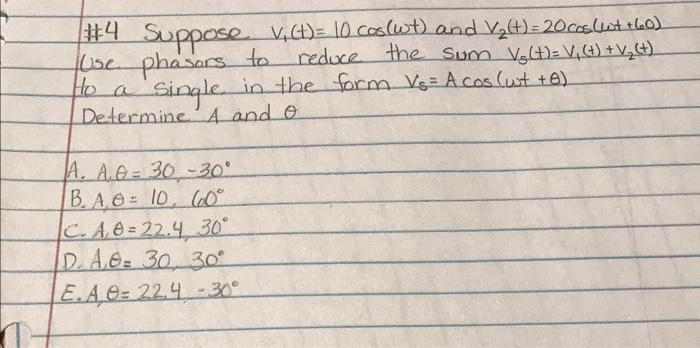 #4 Suppose V₁(t)= 10 cos(ωt) and V₂(t)=20cos(ωt+60)
Use phasors to reduce the sum Vs(t)=V₁(t)+V₂(t)
to a single in the form Vs= A cos(ωt+θ)
Determine A and θ
A. A,θ= 30, -30°
B. A,θ= 10, 60°
C. A,θ=22.4, 30°
D. A,θ= 30, 30°
E. A,θ= 22.4, -30°